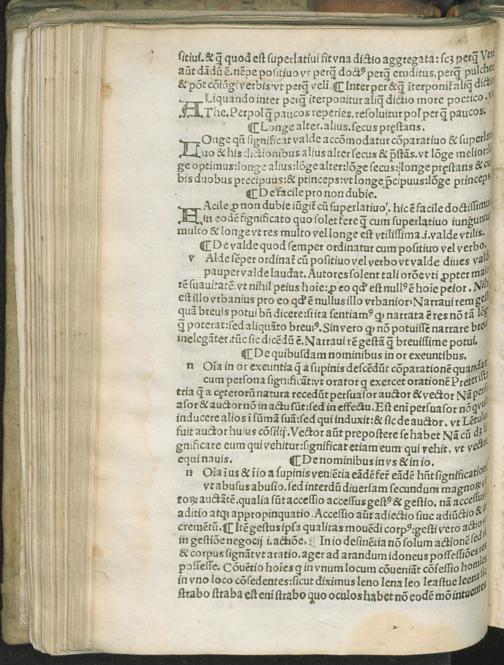 sitiui. & q̃ quod est superlatiui fit vna dictio aggregata: scʒ perq̃ Vtē
aūt dādū ē. nēpe positiuo vt perq̃ doct⁹ perq̃ eruditus. perq̃ pulcher
& pōt cōiūgi verbis vt perq̃ veli. ¶ Inter per & q̃ iterponit̃ aliq̃ dictio
ALiquando inter perq̃ iterponitur aliq̃ dictio more poetico. vt
The. Perpol q̃ paucos reperies. resoluitur pol per q̃ paucos.
¶ Longe alter. alius. secus prestans.
LOnge qñ significat valde accōmodatur cōparatiuo & superla
tiuo & his dictionibus alius alter secus & p̄stās. vt lōge melior: lō
ge optimus: longe alius: lōge alter: lōge secus: longe prestans & cū
bis duobus precipuus: & princeps: vt longe p̄cipuus: lōge princeps
¶ De facile pro non dubie.
FAcile p̱ non dubie iūgit̃ cū superlatiuo. hic ē facile doctissimus
in eodē significato quo solet fere q̃ cum superlatiuo iungūtur
multo & longe vt res multo vel longe est vtilissima. i. valde vtilis.
¶ De valde quod semper ordinatur cum positiuo vel verbo.
v Alde sēper ordinat̃ cū positiuo vel verbo vt valde diues valde
pauper valde laudat. Autores solent tali orōe vti p̱pter maio
rē suauitatē. vt nihil peius hoīe: p̱ eo qđ est null⁹ ē hoīe peior. Nihil
est illo vrbanius pro eo qđ ē nullus illo vrbanior. Narraui rem gestā
quā breuis potui bñ dicere: si ita sentiam⁹ ꝙ narrata ē res nō tā lōge
q̃ poterat: sed aliquāto breui⁹. Sin vero ꝙ nō potuisse narrare breuius
inelegāter. tūc sic dicēdū ē. Narraui rē gestā q̃ breuissime potui.
¶ De quibusdam nominibus in or exeuntibus.
n Oīa in or exeuntia q̃ a supinis descēdūt cōparatione quandam
cum persona significāt: vt orator q̃ exercet orationē
tria q̃ a ceterorū natura recedūt persuasor auctor & vector Nā
asor & auctor nō in actu sūt: sed in effectu. Est eni persuasor nō
inducere alios i sūmā suā: sed qui induxit: & sic de auctor. vt
fuit auctor huius cōsilij. Vector aūt prepostere se habet Nā cū
gnificare eum qui vehitur: significat etiam eum qui vehit. vt vector
equi nauis. ¶ De nominibus in vs & in io.
n Oīa i us & i io a supinis veniētia eādē ferē eādē hñt significationē
vt abusus abusio. sed interdū diuersam secundum
torꝝ auctātē. qualia sūt accessio accessus gest⁹ & gestio. nā accessus
aditio atqꝫ appropinquatio. Accessio aūt adiectio siue adiūctio & in
crementū. ¶ Itē gestus ipsa qualitas mouēdi corp⁹: gesti vero actio
in gestiōe negocij i. actiōe. ¶ In io desinētia nō solum actionē sed
& corpus signāt vt aratio. ager ad arandum idoneus possessiōes
possesse. Cōuētio hoīes q̃ in vnum locum cōueniāt cōfessio
in vno loco cōsedentes: sicut diximus leno lena leo lea siue leena
strabo straba est eni strabo quo oculos habet nō eodē mō intuentes